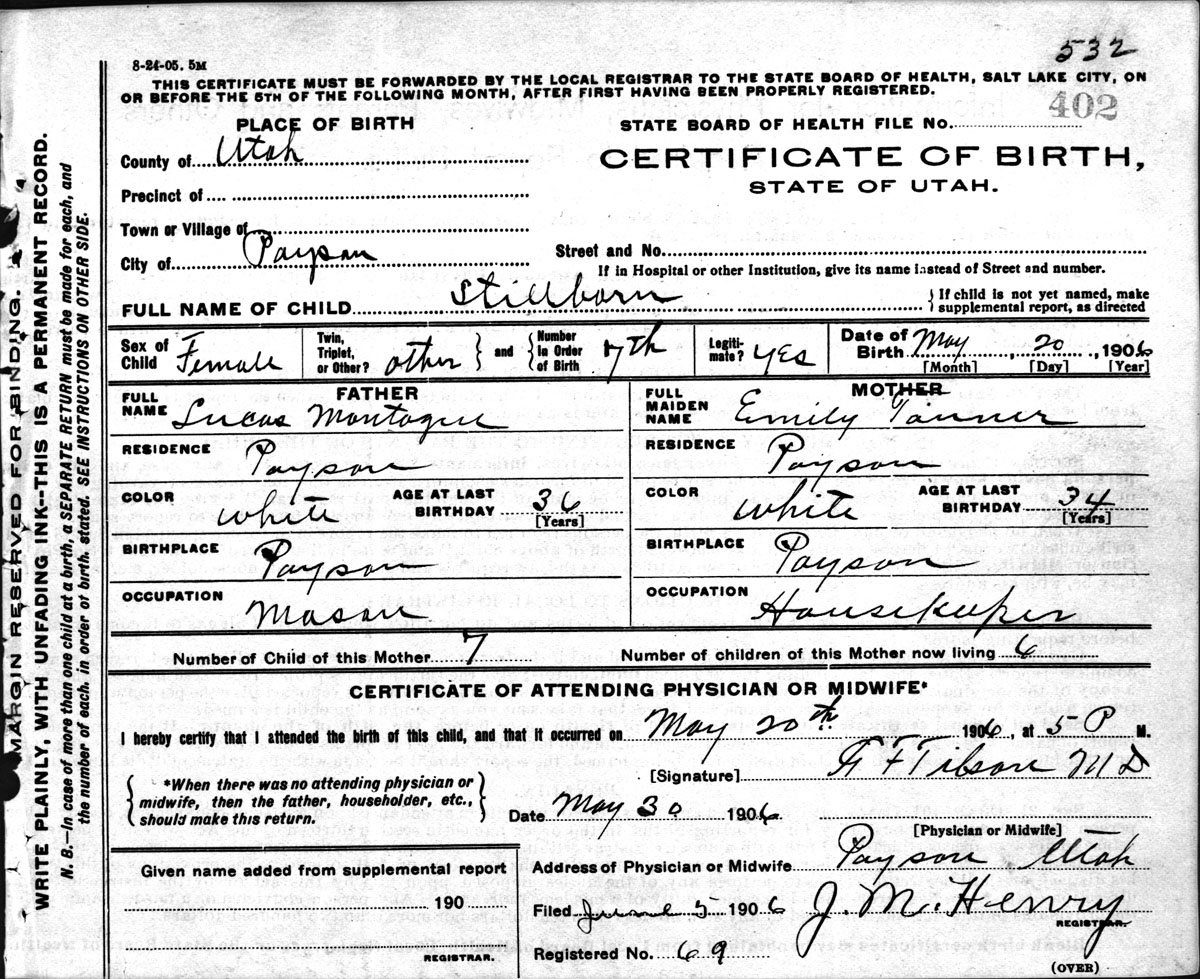 532
8-24-05. 5M
THIS CERTIFICATE MUST BE FORWARDED BY THE LOCAL REGISTRAR TO THE STATE BOARD OF HEALTH, SALT LAKE CITY, ON
OR BEFORE THE 5TH OF THE FOLLOWING MONTH, AFTER FIRST HAVING BEEN PROPERLY REGISTERED.
402
PLACE OF BIRTH
STATE BOARD OF HEALTH FILE No.
County of Utah
CERTIFICATE OF BIRTH,
STATE OF UTAH.
Precinct of
Town or Village of
City of Payson
Street and No.
If in Hospital or other Institution, give its name instead of Street and number.
FULL NAME OF CHILD Stillborn
{ If child is not yet named, make
supplemental report, as directed
Sex of Child Female
Twin, Triplet, or Other? other } and { Number in Order of Birth 7th
Legiti-mate? yes
Date of Birth May, 20, 1906
[Month] [Day] [Year]
FATHER
FULL NAME Lucas Montague
RESIDENCE Payson
COLOR White
AGE AT LAST BIRTHDAY 36
[Years]
BIRTHPLACE Payson
OCCUPATION Mason
MOTHER
FULL MAIDEN NAME Emily Tanner
RESIDENCE Payson
COLOR White
AGE AT LAST BIRTHDAY 34
[Years]
BIRTHPLACE Payson
OCCUPATION Housekeeper
Number of Child of this Mother 7
Number of children of this Mother now living 6
CERTIFICATE OF ATTENDING PHYSICIAN OR MIDWIFE*
I hereby certify that I attended the birth of this child, and that it occurred on May 20th 1906, at 5 P M.
{ *When there was no attending physician or
midwife, then the father, householder, etc.,
should make this return. }
[Signature] Tilson MD
Date May 30 1906
[Physician or Midwife]
Address of Physician or Midwife Payson Utah
Given name added from supplemental report
190
REGISTRAR.
Filed June 5 1906 J. M. Henry
REGISTRAR.
Registered No. 69
(OVER)
MARGIN RESERVED FOR BINDING.
WRITE PLAINLY, WITH UNFADING INK--THIS IS A PERMANENT RECORD.
N. B.--In case of more than one child at a birth, a SEPARATE RETURN must be made for each, and
the number of each, in order of birth, stated. SEE INSTRUCTIONS ON OTHER SIDE.